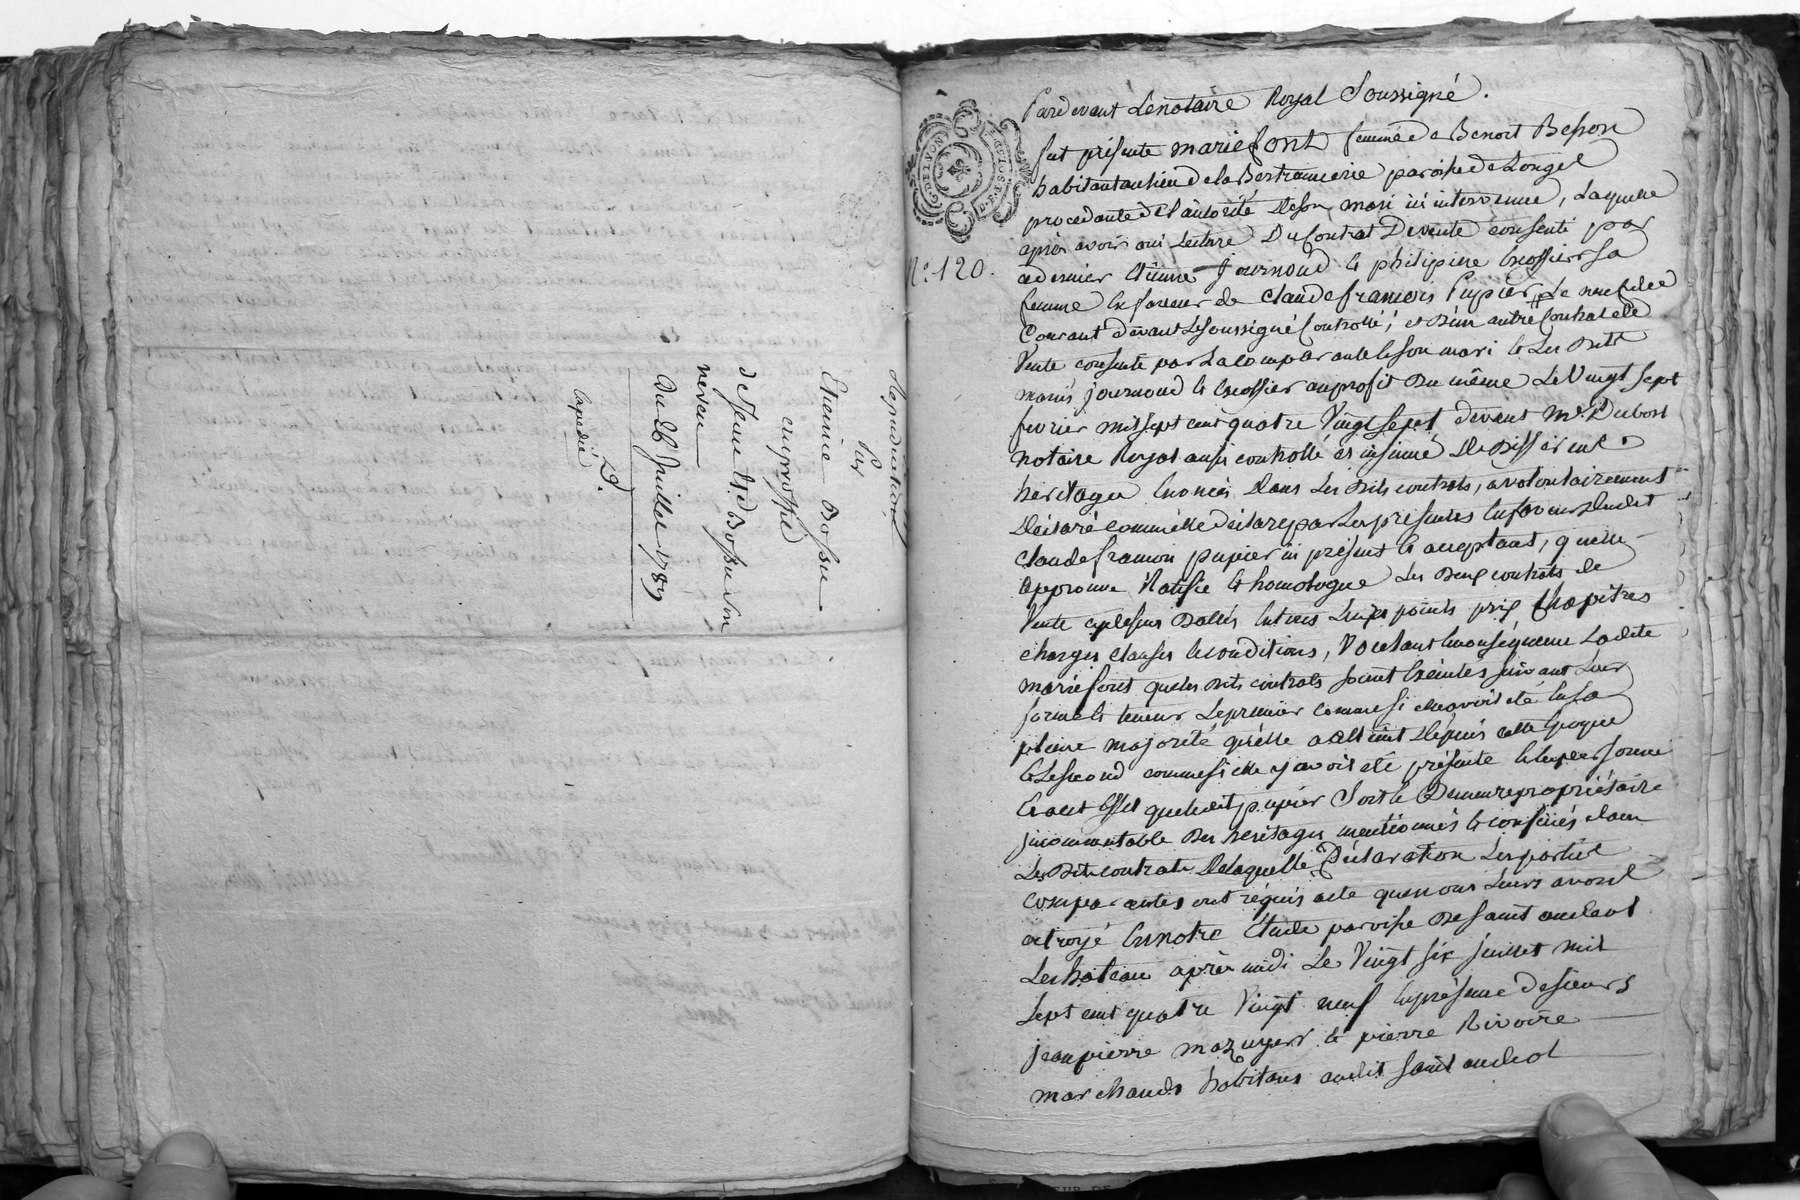 Repudiation
Par
Etienne Bossu
au proffit
de Jean Bte Bossu son
neveu
Du 26 Juillet 1789
Expedié
G. DE LYON
N° 120.
Pardevant Le notaire Royal Soussigné.
fut présente marie font femme de Benoit Besson
habitant au lieu de la Bertrancerie paroisse de Longes
procedante de l'autorité de son mari ici intervenue, Laquelle
après avoir oui Lecture Du Contrat De vente consenti par
Etienne Journoud & philipine Crossier sa
femme En faveur de Claude françois Pupier, Le neuf de ce
Courant devant Le soussigné Controllé, et D'un autre Contrat de
Vente consenti par La comparante & son mari & Les Dits
mariés journoud & Crossier au profit Du même Le Vingt sept
fevrier mil sept cent quatre Vingt sept devant Me Dubost
notaire Royal aussi controllé et insinué De Different
heritages Enoncés Dans Les Dits contrats, a volontairement
Déclaré comme Elle déclare par Les présentes En faveur dudit
Claude francois pupier ici présent & acceptant, quelle
approuve Ratifie & homologue Les Deux contrats de
Vente cy dessus Dattés En tous Leurs points prix Chapitres
charges clauses & conditions, Voulant En conséquence Ladite
marie font que les Dits contrats soient Exécutés suivant Leur
forme & teneur Le premier comme si elle avoit été En sa
pleine majorité qu'elle a atteint Depuis cette Epoque
& Le second comme si elle y avoit été présente & En personne
Et a cet Effet que ledit pupier Soit & Demeure propriétaire
jncommutable Des heritages mentionnés & confinés dans
Les Dits contrats De laquelle Déclaration Les parties
comparantes ont réquis acte que nous Leurs avons
octroyé En notre Etude paroisse De saint andeol
Le chateau après midi Le Vingt six juillet mil
sept cent quatre Vingt neuf En présence de sieurs
jean pierre mazuyer & pierre Rivoire
marchands habitans audit saint andeol